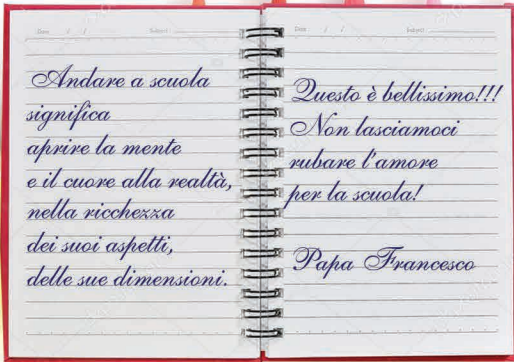 Date / / Subject:
Andare a scuola
significa
aprire la mente
e il cuore alla realtà,
nella ricchezza
dei suoi aspetti,
delle sue dimensioni.
Date / / Subject:
Questo è bellissimo!!!
Non lasciamoci
rubare l'amore
per la scuola!
Papa Francesco